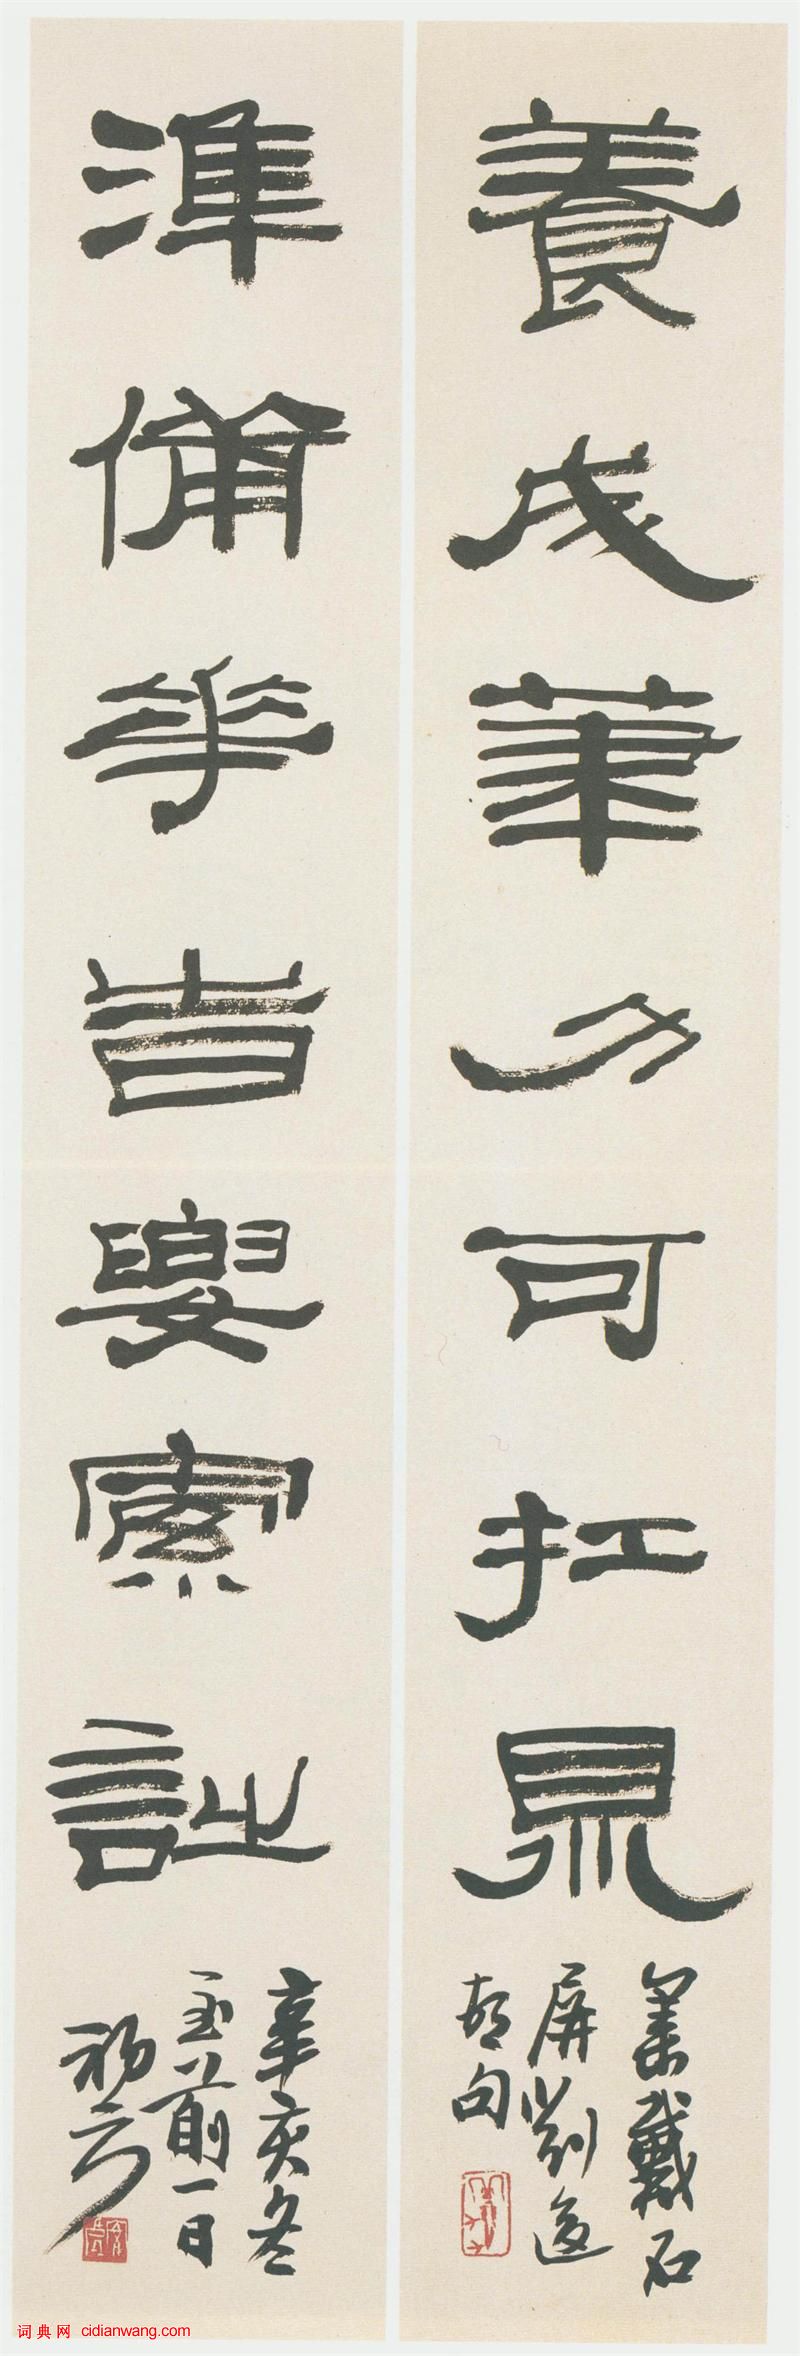 養成筆力可扛鼎
集戴石
屏劉後
邨句
準備華旹要索詩
辛亥冬
至前一日
初升
词典网 cidianwang.com